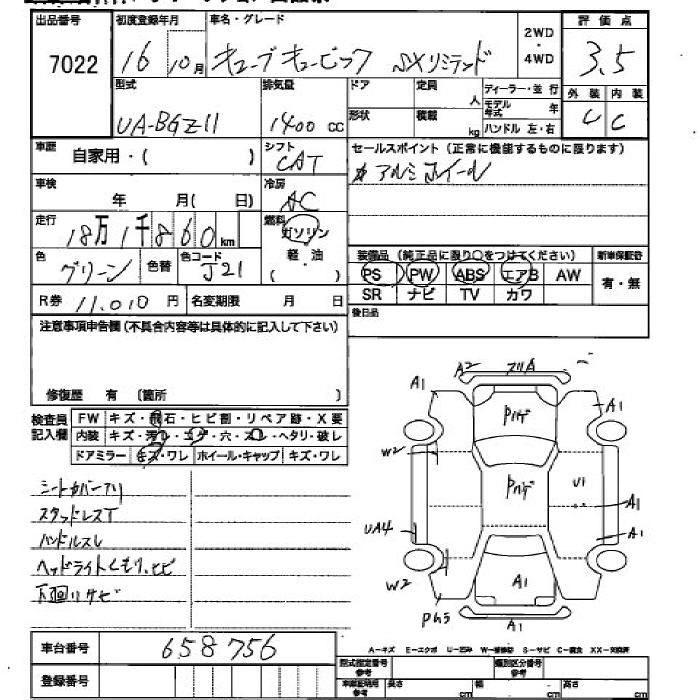 出品番号 初度登録年月 車名・グレード 2WD・4WD 評価点
7022 16 10月 キューブキュービック SXリミテッド 3.5
型式 排気量 ドア 定員 人 ディーラー・並行 外装 内装
UA-BGZ11 1400 CC 形状 積載 kg モデル年式 年 ハンドル 左・右 C
車歴 自家用・( ) シフト CAT セールスポイント(正常に機能するものに限ります)
アルミホイール
車検 年 月( 日) 冷房 AC
走行 18万1千860km 燃料 ガソリン 軽・油 ( )
装備品(純正品に限り○をつけてください) 新車保証書
色 グリーン 色替 色コード J21
PS PW ABS エアB AW 有・無
SR ナビ TV カワ
R券 11,010 円 名変期限 月 日
後日品
注意事項申告欄(不具合内容等は具体的に記入して下さい)
修復歴 有 (箇所 )
検査員記入欄 FW キズ・飛石・ヒビ割・リペア跡・X要
内装 キズ・汚れ・コゲ・穴・スレ・ヘタリ・破レ
ドアミラー キズ・ワレ ホイール・キャップ キズ・ワレ
シートカバーアリ
スタッドレスT
ハンドルスレ
ヘッドライトくもり、ヒビ
下回りサビ
A2
A1 A1
Pハゲ
W2
Pハゲ U1
A1
UA4 A1
W2
A1
A1
車台番号 658756
登録番号
A-キズ E-エクボ U-凹み W-補修跡 S-サビ C-腐食 XX-交換済
型式指定番号 参考 類別区分番号 参考
車庫証明用 参考 長さ cm 幅 cm 高さ cm